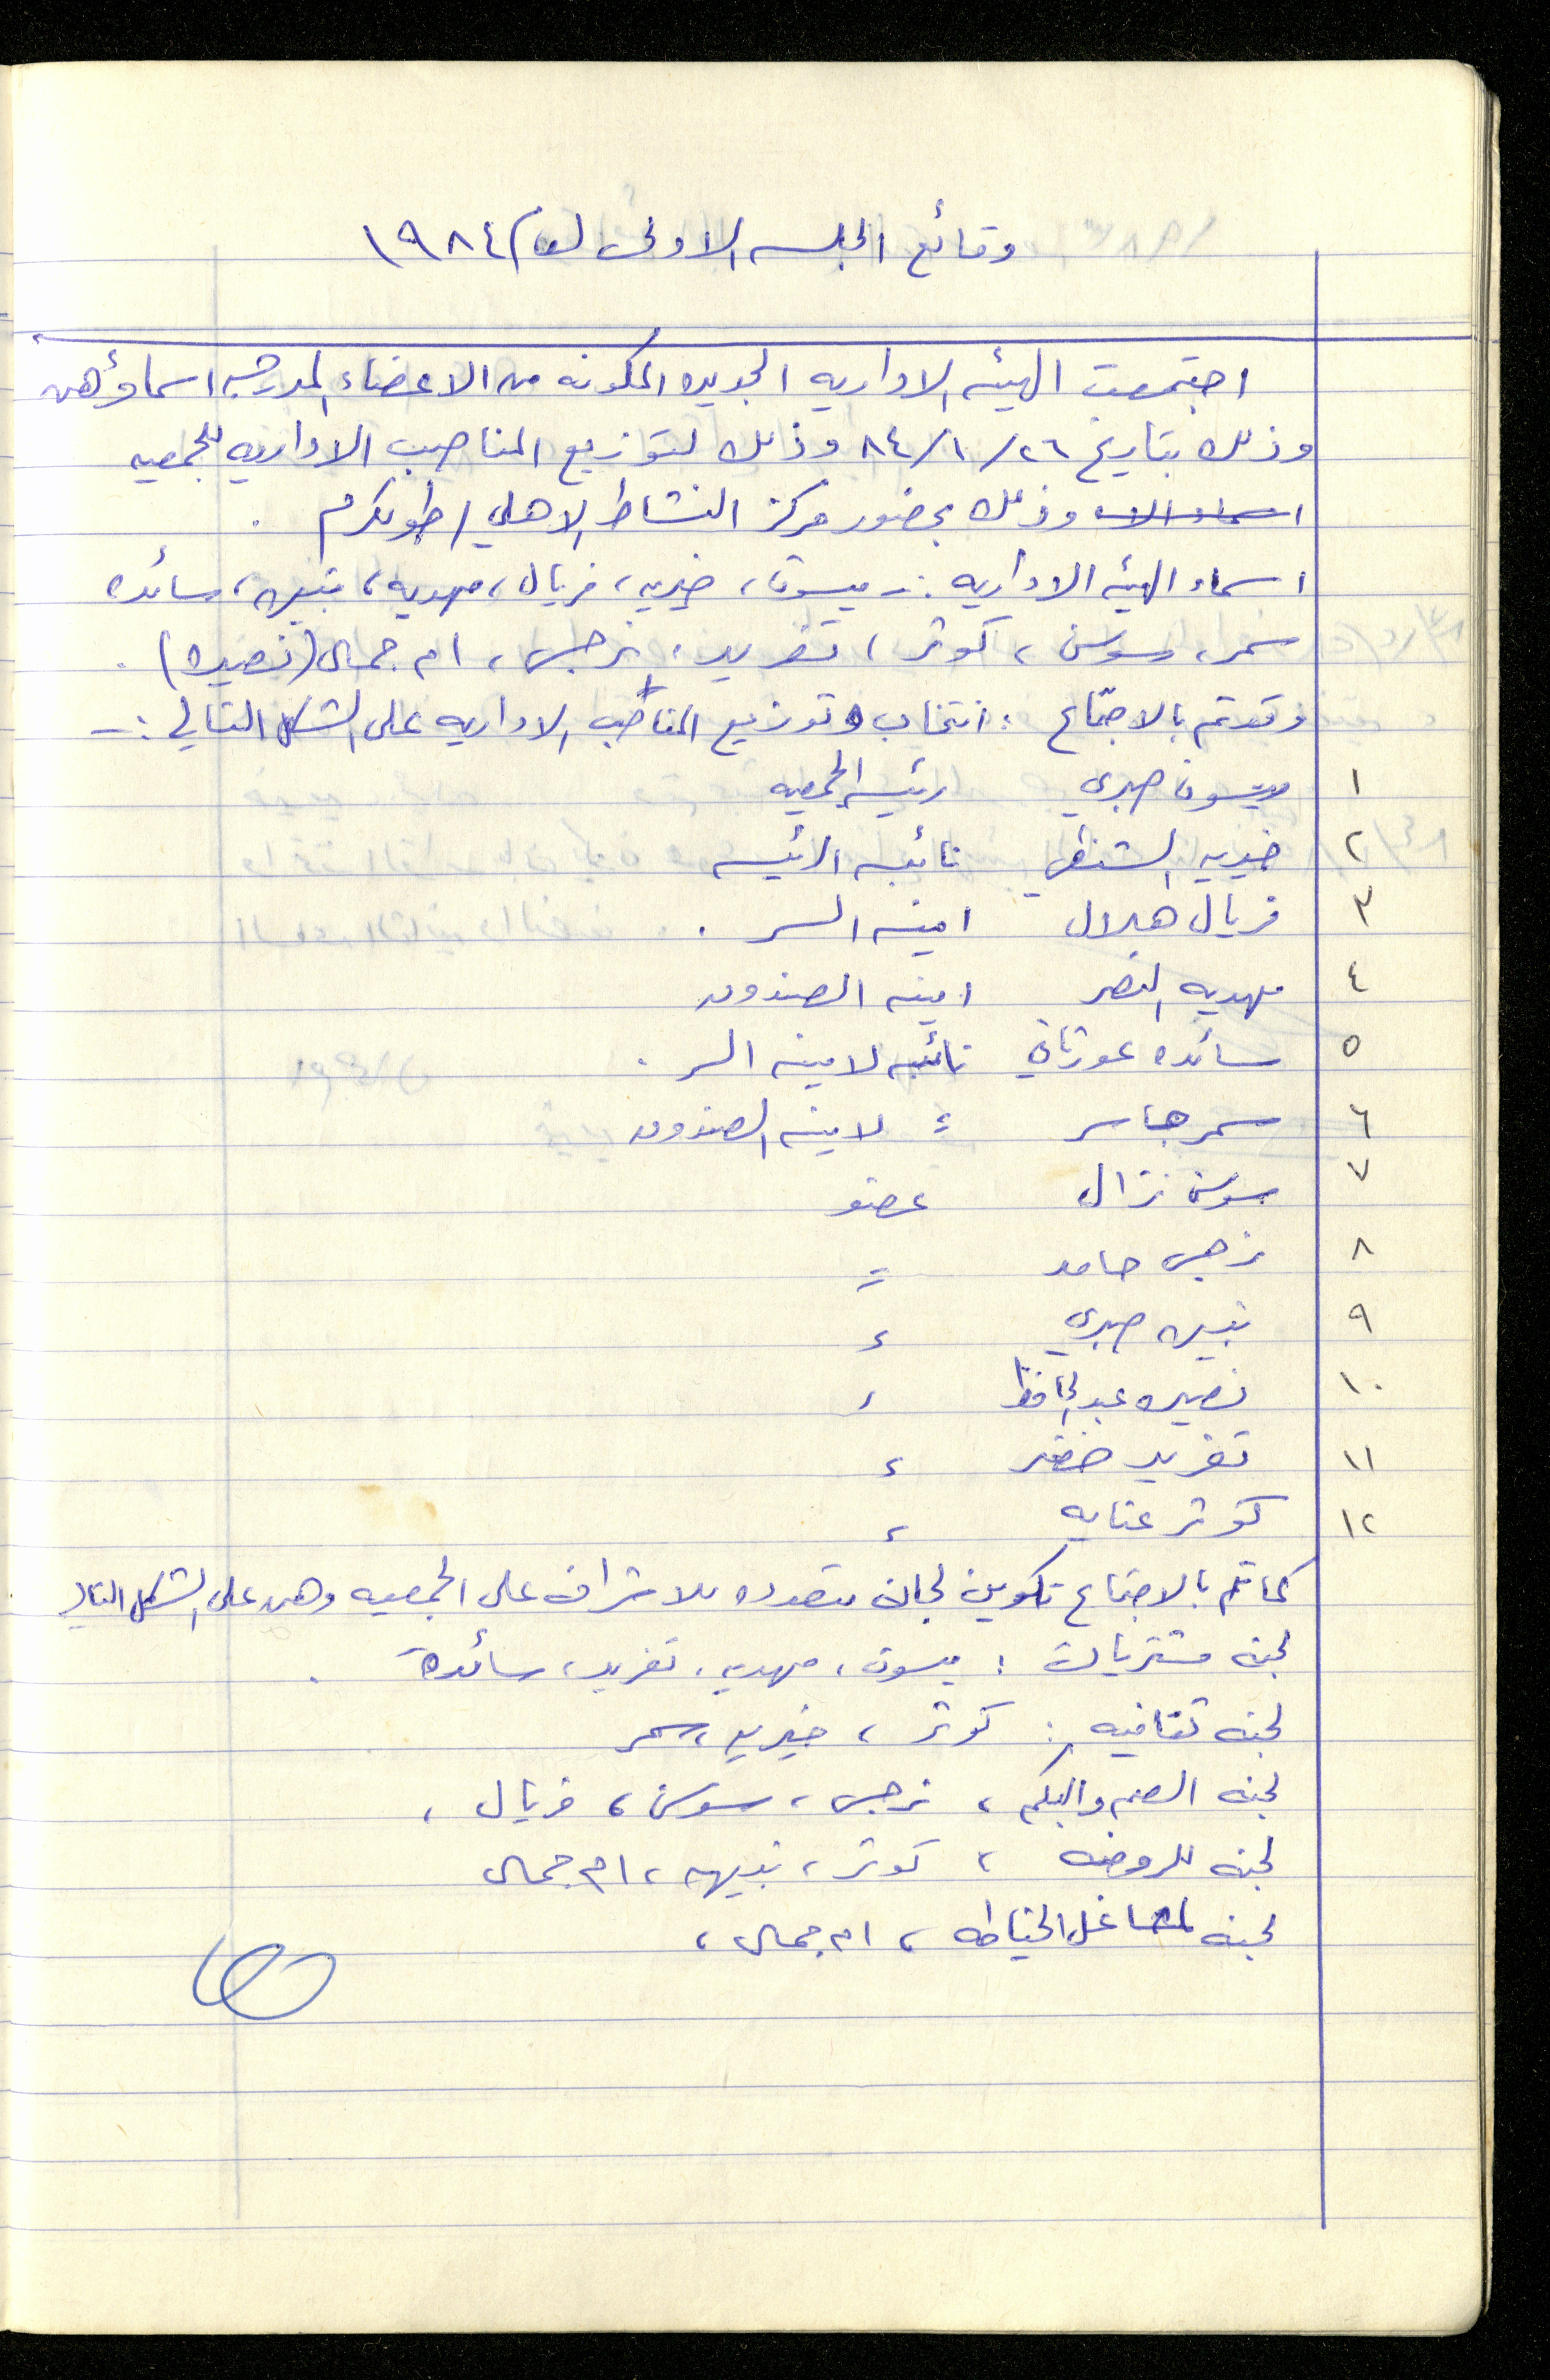 وقائع الجلسه الاولى لعام ١٩٨٤
اجتمعت الهيئه الاداريه الجديده المكونه من الاعضاء المدرجه اسماؤهن
وذلك بتاريخ ٢٦/١/٨٤ وذلك لتوزيع المناصب الاداريه للجمعيه
وذلك بحضور مركز النشاط الاهلي / طولكرم .
اسماء الهيئه الاداريه :- ميسون، خيريه، فريال، مهديه، نبيهه، سائده
سمر، سوسن، كوثر، تغريد، نرجس، ام جمال (نصيره) .
وقد تم بالاجتماع : انتخاب وتوزيع المناصب الاداريه على الشكل التالي :-
١ ميسون صبري رئيسه الجمعيه
٢ خيريه الشنطي نائبه الرئيسه
٣ فريال هلال امينه السر .
٤ مهديه النصر امينه الصندوق
٥ سائده عورتاني نائبه لامينه السر .
٦ سمر جاسر = لامينه الصندوق
٧ سوسن نزال عضو
٨ نرجس حامد =
٩ نبيهه صبري =
١٠ نصيره عبد الحافظ =
١١ تغريد خضر =
١٢ كوثر عنايه =
كما تم بالاجتماع تكوين لجان متعدده للاشراف على الجمعيه وهن على الشكل التالي
لجنه مشتريات : ميسون، مهديه، تغريد، سائدة .
لجنه ثقافيه : كوثر، خيريه، سمر
لجنه الصم والبكم، نرجس، سوسن، فريال،
لجنه للروضه، كوثر، نبيهه، ام جمال
لجنه لمشاغل الخياطه، ام جمال،